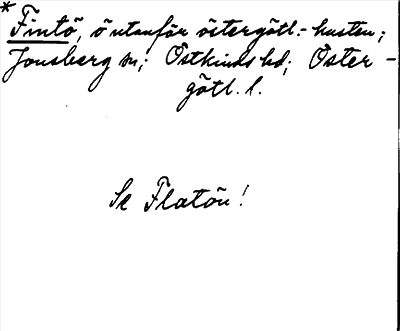 * Fintö, ö utanför östergötl.-kusten;
Jonsberg sn; Östkinds hd; Öster-
götl. l.
Se Flatön!